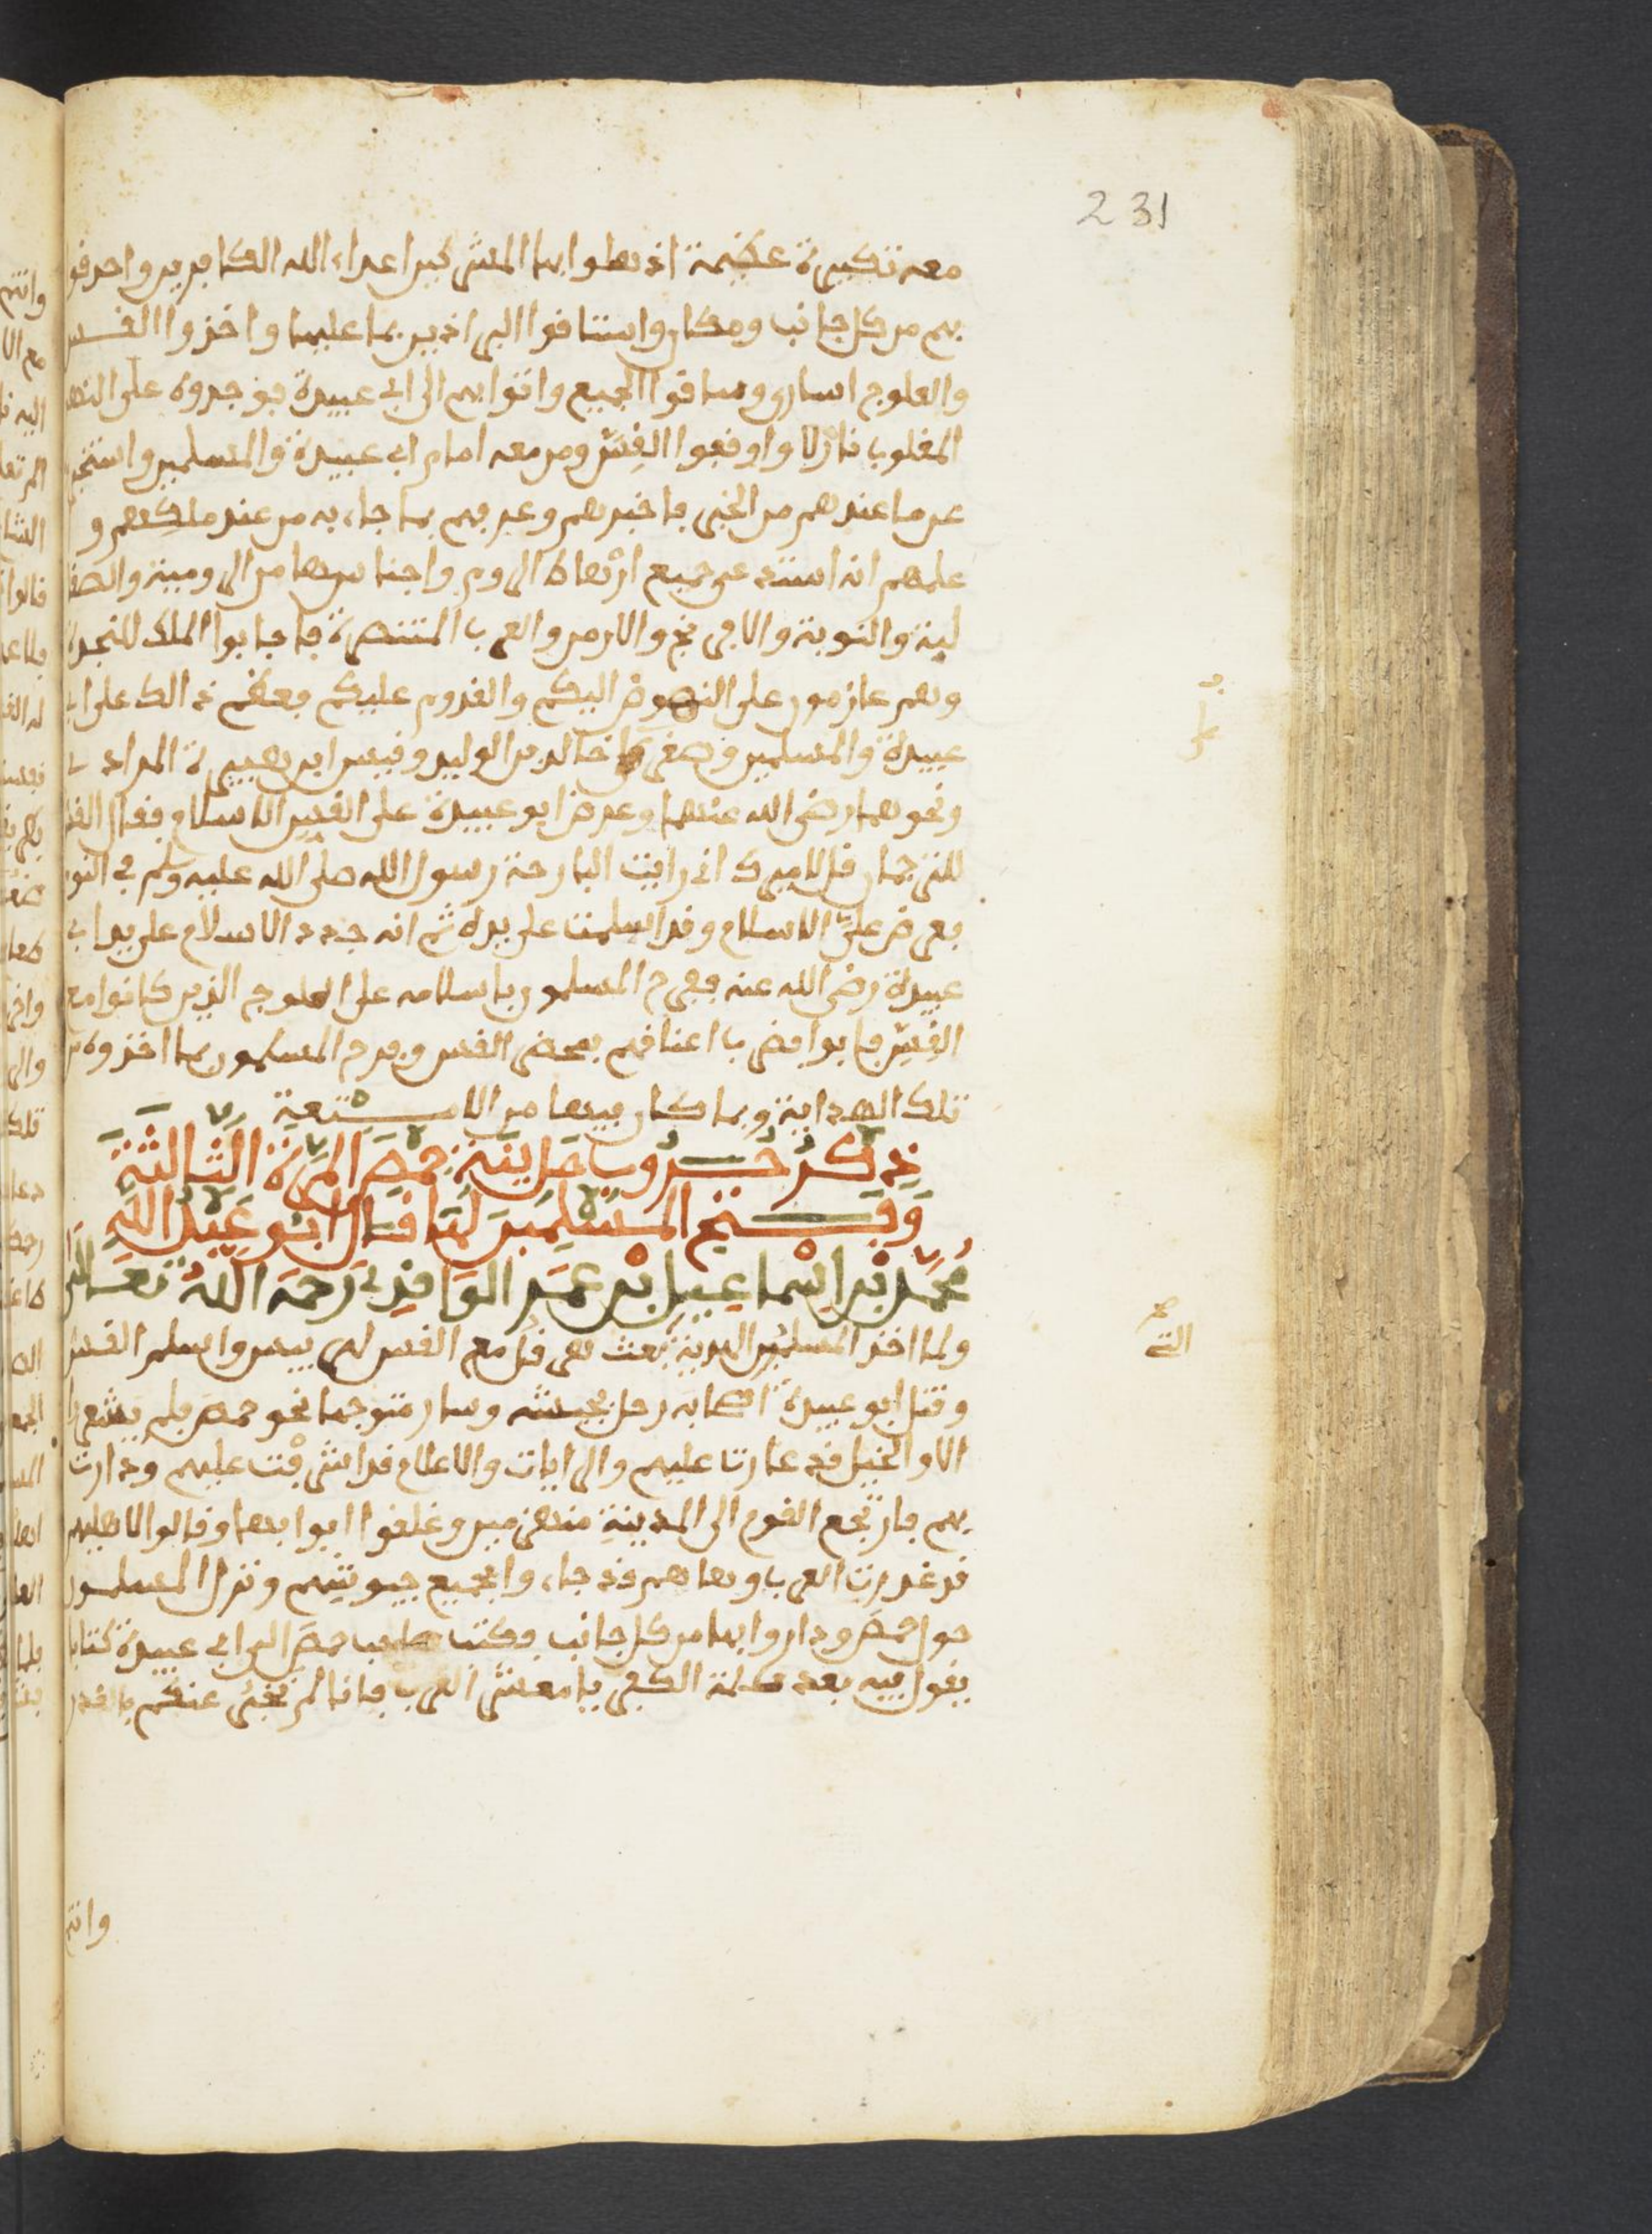 231
معه تكبيرة عظيمة اذهلوا بها المشركين اعداء الله الكافرين واحدقوا
بهم من كل جانب ومكان واستاقوا البراذين بما عليها واخذوا القس
والعلوج اسارى وساقوا الجميع واتوا بهم الى ابي عبيدة فوجدوه على النهر
المغلوب نازلا واوقفوا القس ومن معه امام ابي عبيدة والمسلمين واستخبر
عن ما عندهم من الخبر فاخبرهم وعرفهم بما جاء به من عند ملكهم و
علمهم انه استمد من جميع ارهاط الروم واجناسها من الرومية والصقا
لبة والنوبة والافرنج والارمن والعرب المتنصرة فاجابوا الملك للنجدة
وهم عازمون على النهوض اليكم والقدوم عليكم فعظم ذالك على ابي
عبيدة والمسلمين وصغى خالد بن الوليد وقيس ابن هبيرة المرادي
ونحوهما رضي الله عنهما وعرض ابو عبيدة على القس الاسلام فقال القس
للترجمان قل لاميرك اني رايت البارحة رسول الله صلى الله عليه وسلم في النوم
فعرض علي الاسلام وقد اسلمت على يده ثم انه جدد الاسلام على يد ابي
عبيدة رضي الله عنه ففرح المسلمون باسلامه على العلوج الذين كانوا مع
القس فابوا فضرب اعناقهم بمحضر القس وفرح المسلمون بما اخذوه من
تلك الهداية وبما كان فيها من الامتعة
ذكر حروب مدينة حمص المرة الثالثة
وفتح المسلمين لها قال ابو عبد الله
محمد بن اسماعيل بن عمر الواقدي رحمه الله تعالى
ولما اخذ المسلمين الهدية بعث هرقل مع القس لهربيس واسلم القس
وقتل ابو عبيدة اصحابه رحل بجيشه وسار متوجها نحو حمص فلم يشعروا
الا والخيل قد غارت عليهم والرايات والاعلام قد اشرفت عليهم ودارت
بهم فارتجع القوم الى المدينة منهزمين وغلقوا ابوابها وقالوا لاهليهم
قد غدرت العرب وها هم قد جاءوا بجميع جيوشهم ونزل المسلمون
حول حمص وداروا بها من كل جانب وكتب صاحب حمص الى ابي عبيدة كتابا
يقول فيه بعد كلمة الكفر يا معشر العرب فانا لم نخبر عنكم بالغدر
التي
وانتم